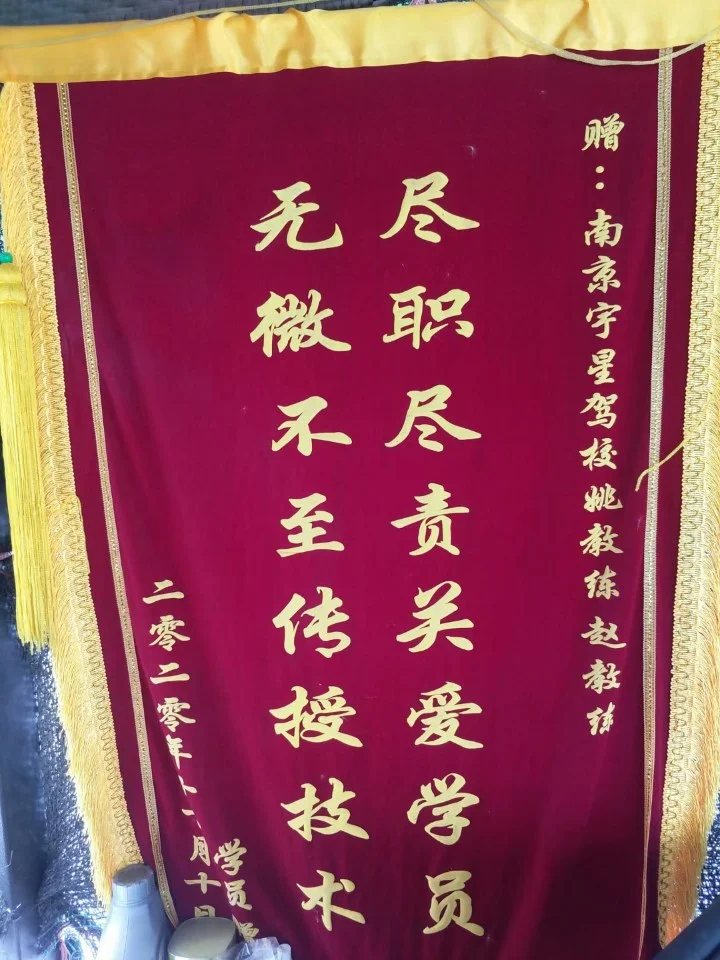 赠：南京宇星驾校姚教练赵教练
尽职尽责关爱学员
无微不至传授技术
学员
二零二零年十一月十日